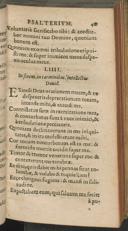 PSALTERIVM.
Voluntarie sacrificabo tibi: & confite-
bor nomini tuo Domine, quoniam
bonum est.
Quoniam ex omni tribulatione eripui-
sti me: & super inimicos meos despe-
xit oculus meus.
LIIII.
In finem, in carminibus, intellectus
David.
EXaudi Deus orationem meam, & ne
despexeris deprecationem meam,
intende mihi, & exaudi me.
Contristatus sum in exercitatione mea,
& conturbatus sum à voce inimici, &
à tribulatione peccatoris.
Quoniam declinauerunt in me iniqui-
tates, & in ira molesti erant mihi.
Cor meum conturbatum est in me: &
formido mortis cecidit super me.
Timor & tremor venerunt super me: &
contexerunt me tenebræ.
Et dixi: Quis dabit mihi pennas sicut co-
lumbæ, & volabo & requiescam?
Ecce elongaui fugiens, & mansi in soli-
tudine.
Expectabam eum, qui saluum me fecit